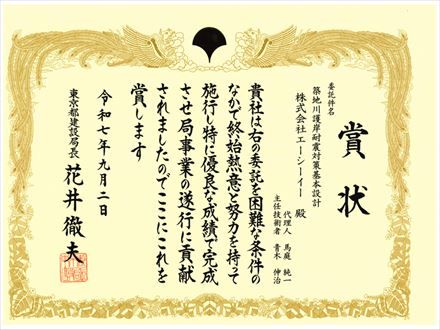 賞状
委託件名
築地川護岸耐震対策基本設計
株式会社エーシーイー 殿
代理人 馬庭 純一
主任技術者 青木 伸治
貴社は右の委託を困難な条件の
なかで終始熱意と努力を持って
施行し特に優良な成績で完成
させ局事業の遂行に貢献
されましたのでここにこれを
賞します
令和七年九月二日
東京都建設局長 花井徹夫